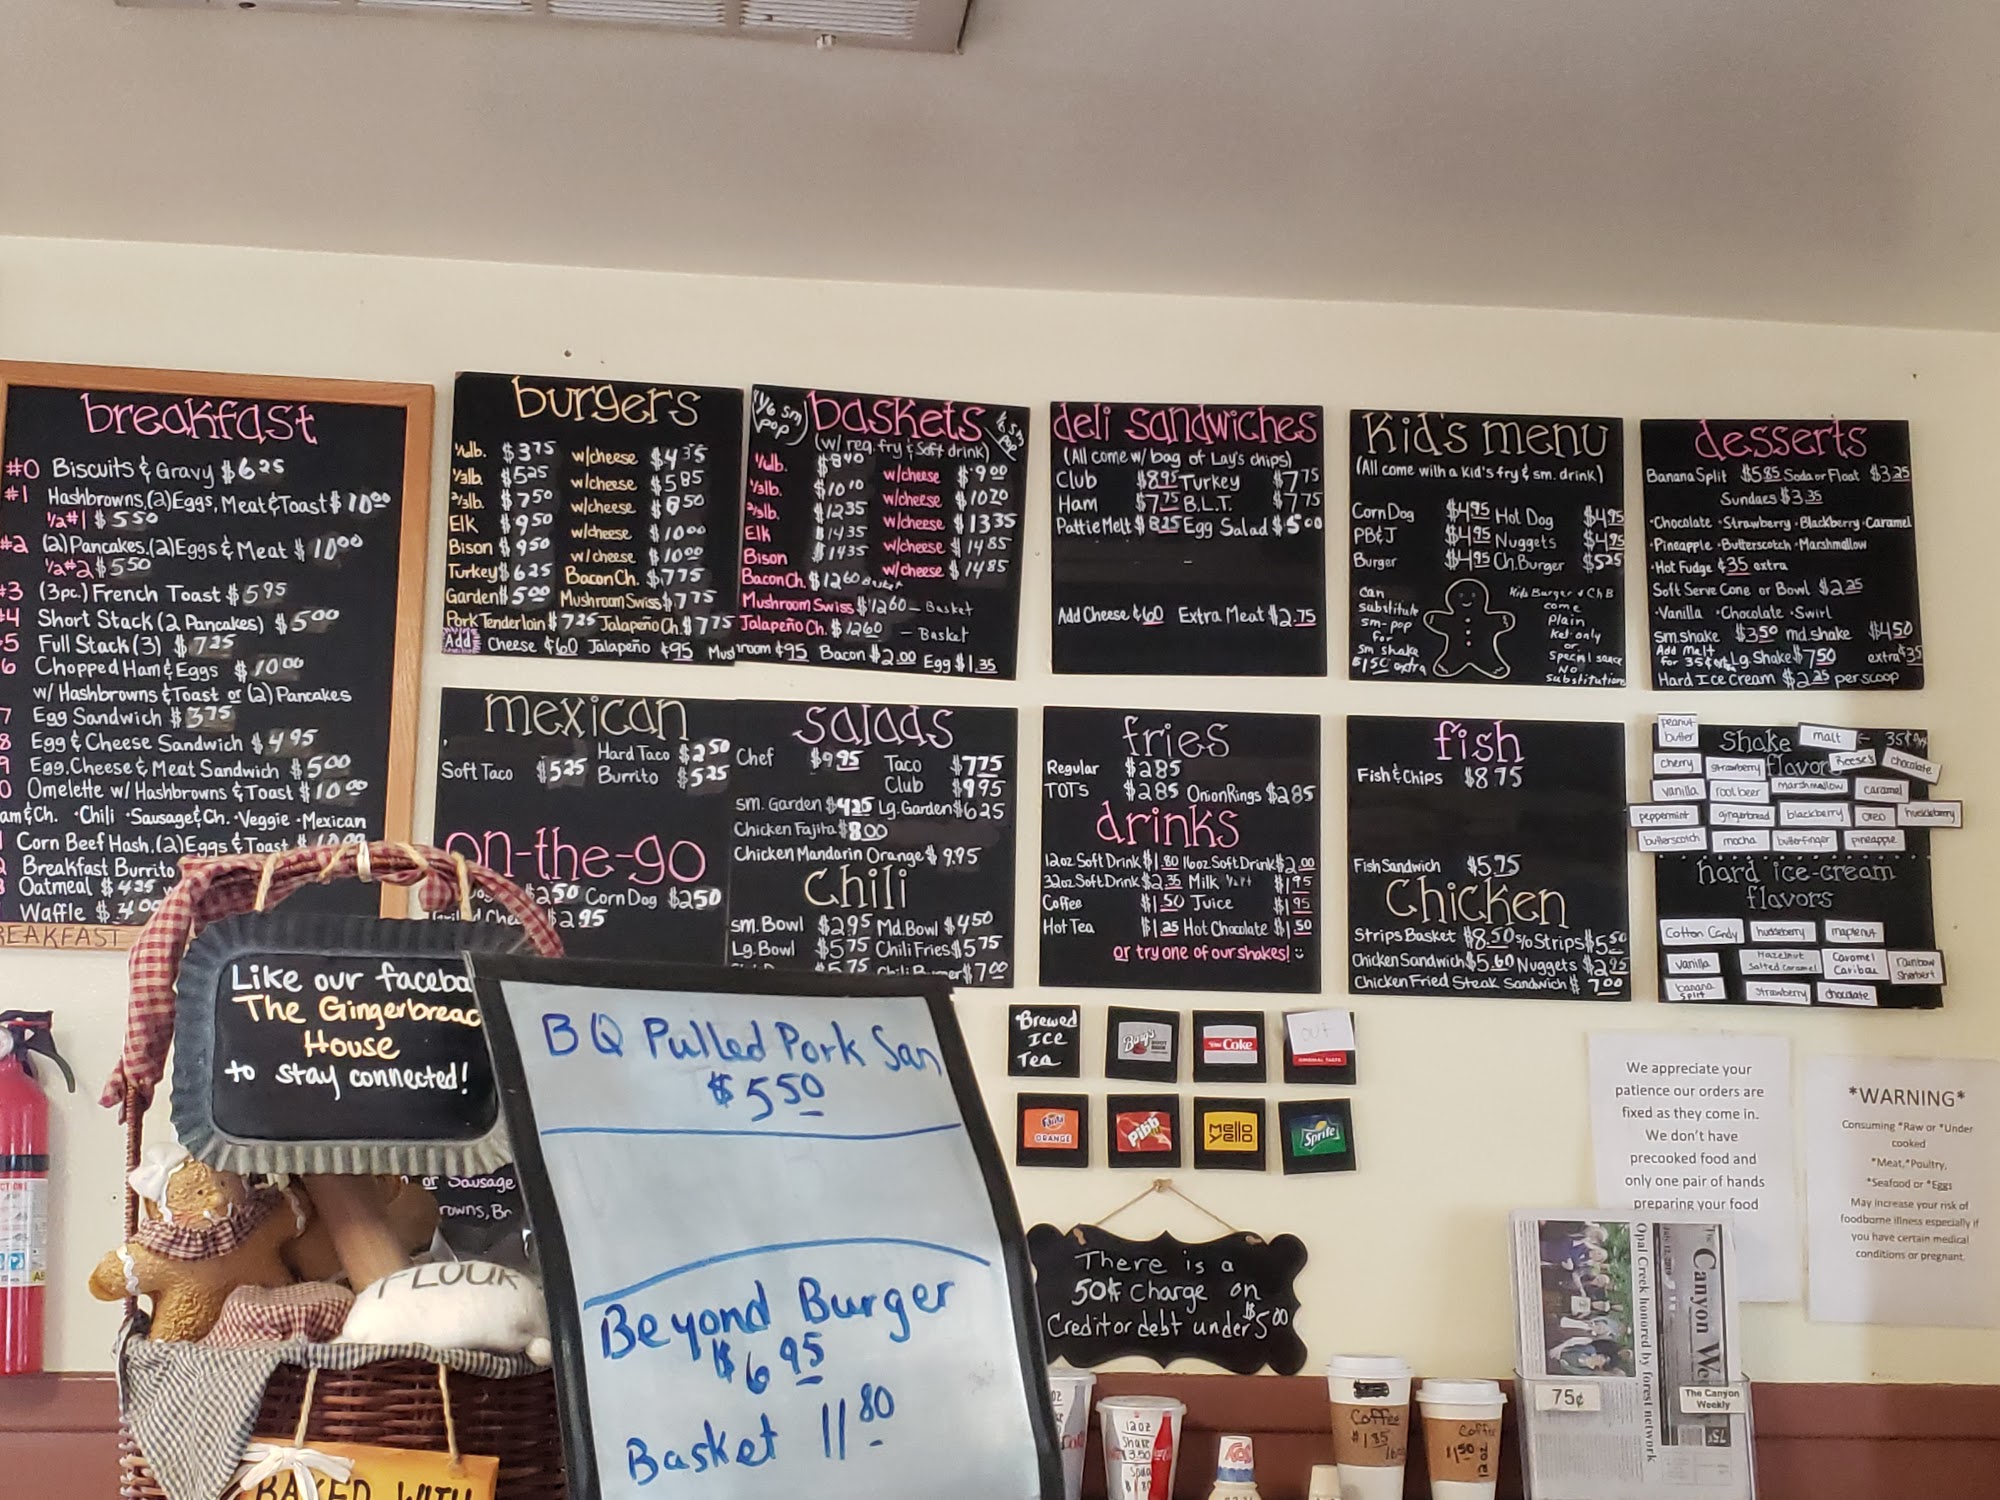 breakfast
#0 Biscuits & Gravy $6.25
#1 Hashbrowns,(2)Eggs, Meat & Toast $10.00
1/2 #1 $5.50
#2 (2)Pancakes,(2)Eggs & Meat $10.00
1/2 #2 $5.50
#3 (3pc.) French Toast $5.95
#4 Short Stack (2 Pancakes) $5.00
5 Full Stack (3) $7.25
6 Chopped Ham & Eggs $10.00
w/ Hashbrowns & Toast or (2) Pancakes
7 Egg Sandwich $3.75
8 Egg & Cheese Sandwich $4.95
9 Egg, Cheese & Meat Sandwich $5.00
0 Omelette w/ Hashbrowns & Toast $10.00
am & Ch. • Chili • Sausage & Ch. • Veggie • Mexican
Corn Beef Hash, (2) Eggs & Toast $10.00
2 Breakfast Burrito
Oatmeal $4.25
Waffle $4.00
REAKFAST
burgers
1/6lb. $3.75 w/cheese $4.35
1/3lb. $5.25 w/cheese $5.85
2/3lb. $7.50 w/cheese $8.50
Elk $9.50 w/cheese $10.00
Bison $9.50 w/cheese $10.00
Turkey $6.25 Bacon Ch. $7.75
Garden $5.00 Mushroom Swiss $7.75
Pork Tenderloin $7.25 Jalapeño Ch. $7.75
Add Cheese ¢60 Jalapeño ¢95 Mushroom ¢95 Bacon $2.00 Egg $1.35
baskets
(w/ reg. fry & soft drink)
1/6lb. $8.40 w/cheese $9.00
1/3lb. $10.10 w/cheese $10.20
2/3lb. $12.35 w/cheese $13.35
Elk $14.35 w/cheese $14.85
Bison $14.35 w/cheese $14.85
Bacon Ch. $12.60 Basket
Mushroom Swiss $12.60 – Basket
Jalapeño Ch. $12.60 – Basket
deli sandwiches
(All come w/ bag of Lay's chips)
Club $8.95 Turkey $7.75
Ham $7.75 B.L.T. $7.75
Pattie Melt $8.25 Egg Salad $5.00
Add Cheese ¢60 Extra Meat $2.75
Kid's menu
(All come with a kid's fry & sm. drink)
Corn Dog $4.95 Hot Dog $4.95
PB&J $4.95 Nuggets $4.95
Burger $4.95 Ch. Burger $5.25
can
substitute
sm-pop
for
sm shake
$1.50 extra
Kids Burger & Ch B
come
Plain
Ket only
or
Special sauce
No
substitutions
desserts
Banana Split $5.85 Soda or Float $3.25
Sundaes $3.35
• Chocolate • Strawberry • Blackberry • Caramel
• Pineapple • Butterscotch • Marshmallow
• Hot Fudge ¢35 extra
Soft Serve Cone or Bowl $2.25
• Vanilla • Chocolate • Swirl
sm. shake $3.50 md. shake $4.50
Add Malt
for 35¢ Lg. Shake $7.50 extra ¢35
Hard Ice Cream $2.25 per scoop
mexican
Hard Taco $2.50
Soft Taco $5.25 Burrito $5.25
on-the-go
$2.50 Corn Dog $2.50
$2.95
salads
Chef $9.95 Taco $7.75
Club $9.95
sm. Garden $4.25 Lg. Garden $6.25
Chicken Fajita $8.00
Chicken Mandarin Orange $9.95
chili
sm. Bowl $2.95 Md. Bowl $4.50
Lg. Bowl $5.75 Chili Fries $5.75
$5.75 Chili Burger $7.00
fries
Regular $2.85
TOTs $2.85 Onion Rings $2.85
drinks
12oz Soft Drink $1.80 16oz Soft Drink $2.00
32oz Soft Drink $2.35 Milk 1/2 Pt $1.95
Coffee $1.50 Juice $1.95
Hot Tea $1.25 Hot Chocolate $1.50
or try one of our shakes!
fish
Fish & Chips $8.75
Fish Sandwich $5.75
Chicken
Strips Basket $8.50 s/o Strips $5.50
Chicken Sandwich $5.60 Nuggets $2.95
Chicken Fried Steak Sandwich $7.00
Shake flavors
peanut butter
malt 35¢
cherry strawberry Reese's chocolate
vanilla rootbeer marshmallow caramel
peppermint gingerbread blackberry oreo huckleberry
butterscotch mocha butterfinger pineapple
hard ice-cream
flavors
Cotton Candy huckleberry maple nut
vanilla Hazelnut Salted Caramel Caramel Caribou rainbow Sherbert
banana split strawberry chocolate
Like our facebo
The Gingerbread
House
to stay connected!
or Sausage
rowns, Br
FLOUR
BAKED WITH
BQ Pulled Pork San
$5.50
Beyond Burger
$6.95
Basket 11.80
Brewed
Ice
Tea
Barq's
Diet Coke
out
ORIGINAL TASTE
Fanta
ORANGE
Pibb
Mello Yello
Sprite
There is a
50¢ Charge on
Credit or debt under $5.00
We appreciate your
patience our orders are
fixed as they come in.
We don't have
precooked food and
only one pair of hands
preparing your food
*WARNING*
Consuming *Raw or *Under
cooked
*Meat,*Poultry,
*Seafood or *Eggs
May increase your risk of
foodborne illness especially if
you have certain medical
conditions or pregnant.
The Canyon We
July 17, 2019
Opal Creek honored by forest network
75¢
The Canyon
Weekly
75¢
12oz
Shake
$3.50
Soda
$1.80
Coffee
$1.35
Coffee